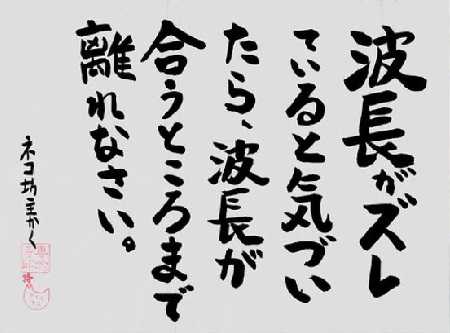 波長がズレ
ていると気づい
たら、波長が
合うところまで
離れなさい。
ネコ坊主かく